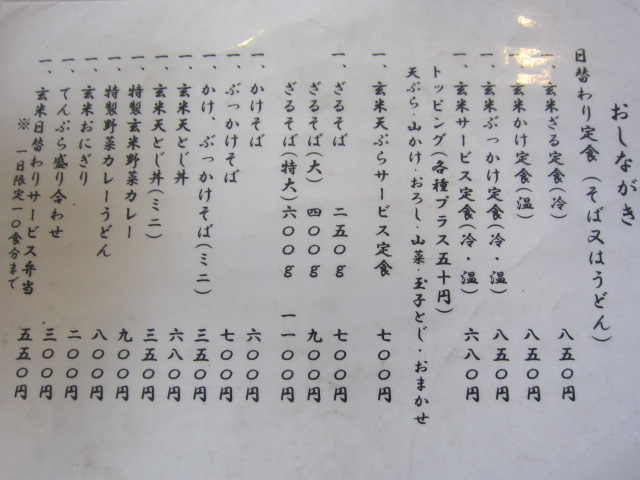 おしながき
日替わり定食(そば又はうどん)
一、玄米ざる定食(冷) 八五〇円
一、玄米かけ定食(温) 八五〇円
一、玄米ぶっかけ定食(冷・温) 八五〇円
一、玄米サービス定食(冷・温) 六八〇円
トッピング(各種プラス五十円)
天ぷら・山かけ・おろし・山菜・玉子とじ・おまかせ
一、玄米天ぷらサービス定食 七〇〇円
一、ざるそば 二五〇g 七〇〇円
ざるそば(大) 四〇〇g 九〇〇円
ざるそば(特大) 六〇〇g 一一〇〇円
一、かけそば 六〇〇円
一、ぶっかけそば 七〇〇円
一、かけ、ぶっかけそば(ミニ) 三五〇円
一、玄米天とじ丼 六八〇円
一、玄米天とじ丼(ミニ) 三五〇円
一、特製玄米野菜カレー 九〇〇円
一、特製野菜カレーうどん 八〇〇円
一、玄米おにぎり 二〇〇円
一、てんぷら盛り合わせ 三〇〇円
一、玄米日替わりサービス弁当 五五〇円
※ 一日限定一〇食分まで